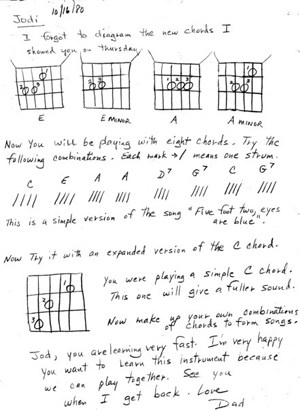 10/16/80
Jodi:
I forgot to diagram the new chords I
showed you on Thursday.
1 2 3
2 3
1 2 3
2 3 1
E E MINOR A A MINOR
Now You will be playing with eight chords. Try the
following combinations. Each mark → / means one strum.
C E A A D7 G7 C G7
//// //// //// //// //// //// //// ////
This is a simple version of the song "Five foot two, eyes
are blue".
Now Try it with an expanded version of the C chord.
1
2
3
You were playing a simple C chord.
This one will give a fuller sound.
Now make up your own combinations
of chords to form songs.
Jodi, you are learning very fast. I'm very happy
you want to learn this instrument because
we can play together. See you
when I get back. Love
Dad